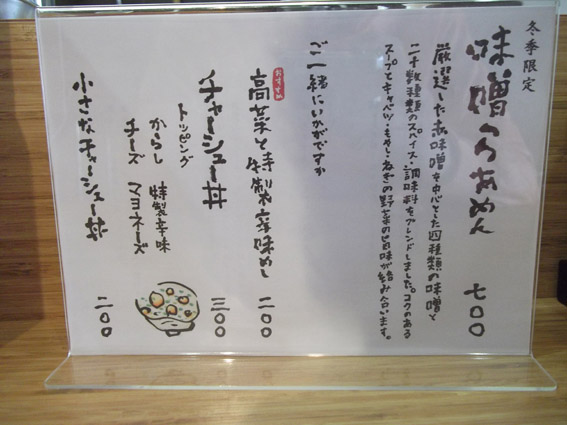 冬季限定
味噌らあめん 七〇〇
厳選した赤味噌を中心とした四種類の味噌と
二十数種類のスパイス・調味料をブレンドしました。コクのある
スープとキャベツ・もやし・ねぎの野菜の旨味が絡み合います。
ご一緒にいかがですか
おすすめ
高菜と特製辛味めし 二〇〇
チャーシュー丼 三〇〇
トッピング
からし 特製辛味
チーズ マヨネーズ
小さなチャーシュー丼 二〇〇